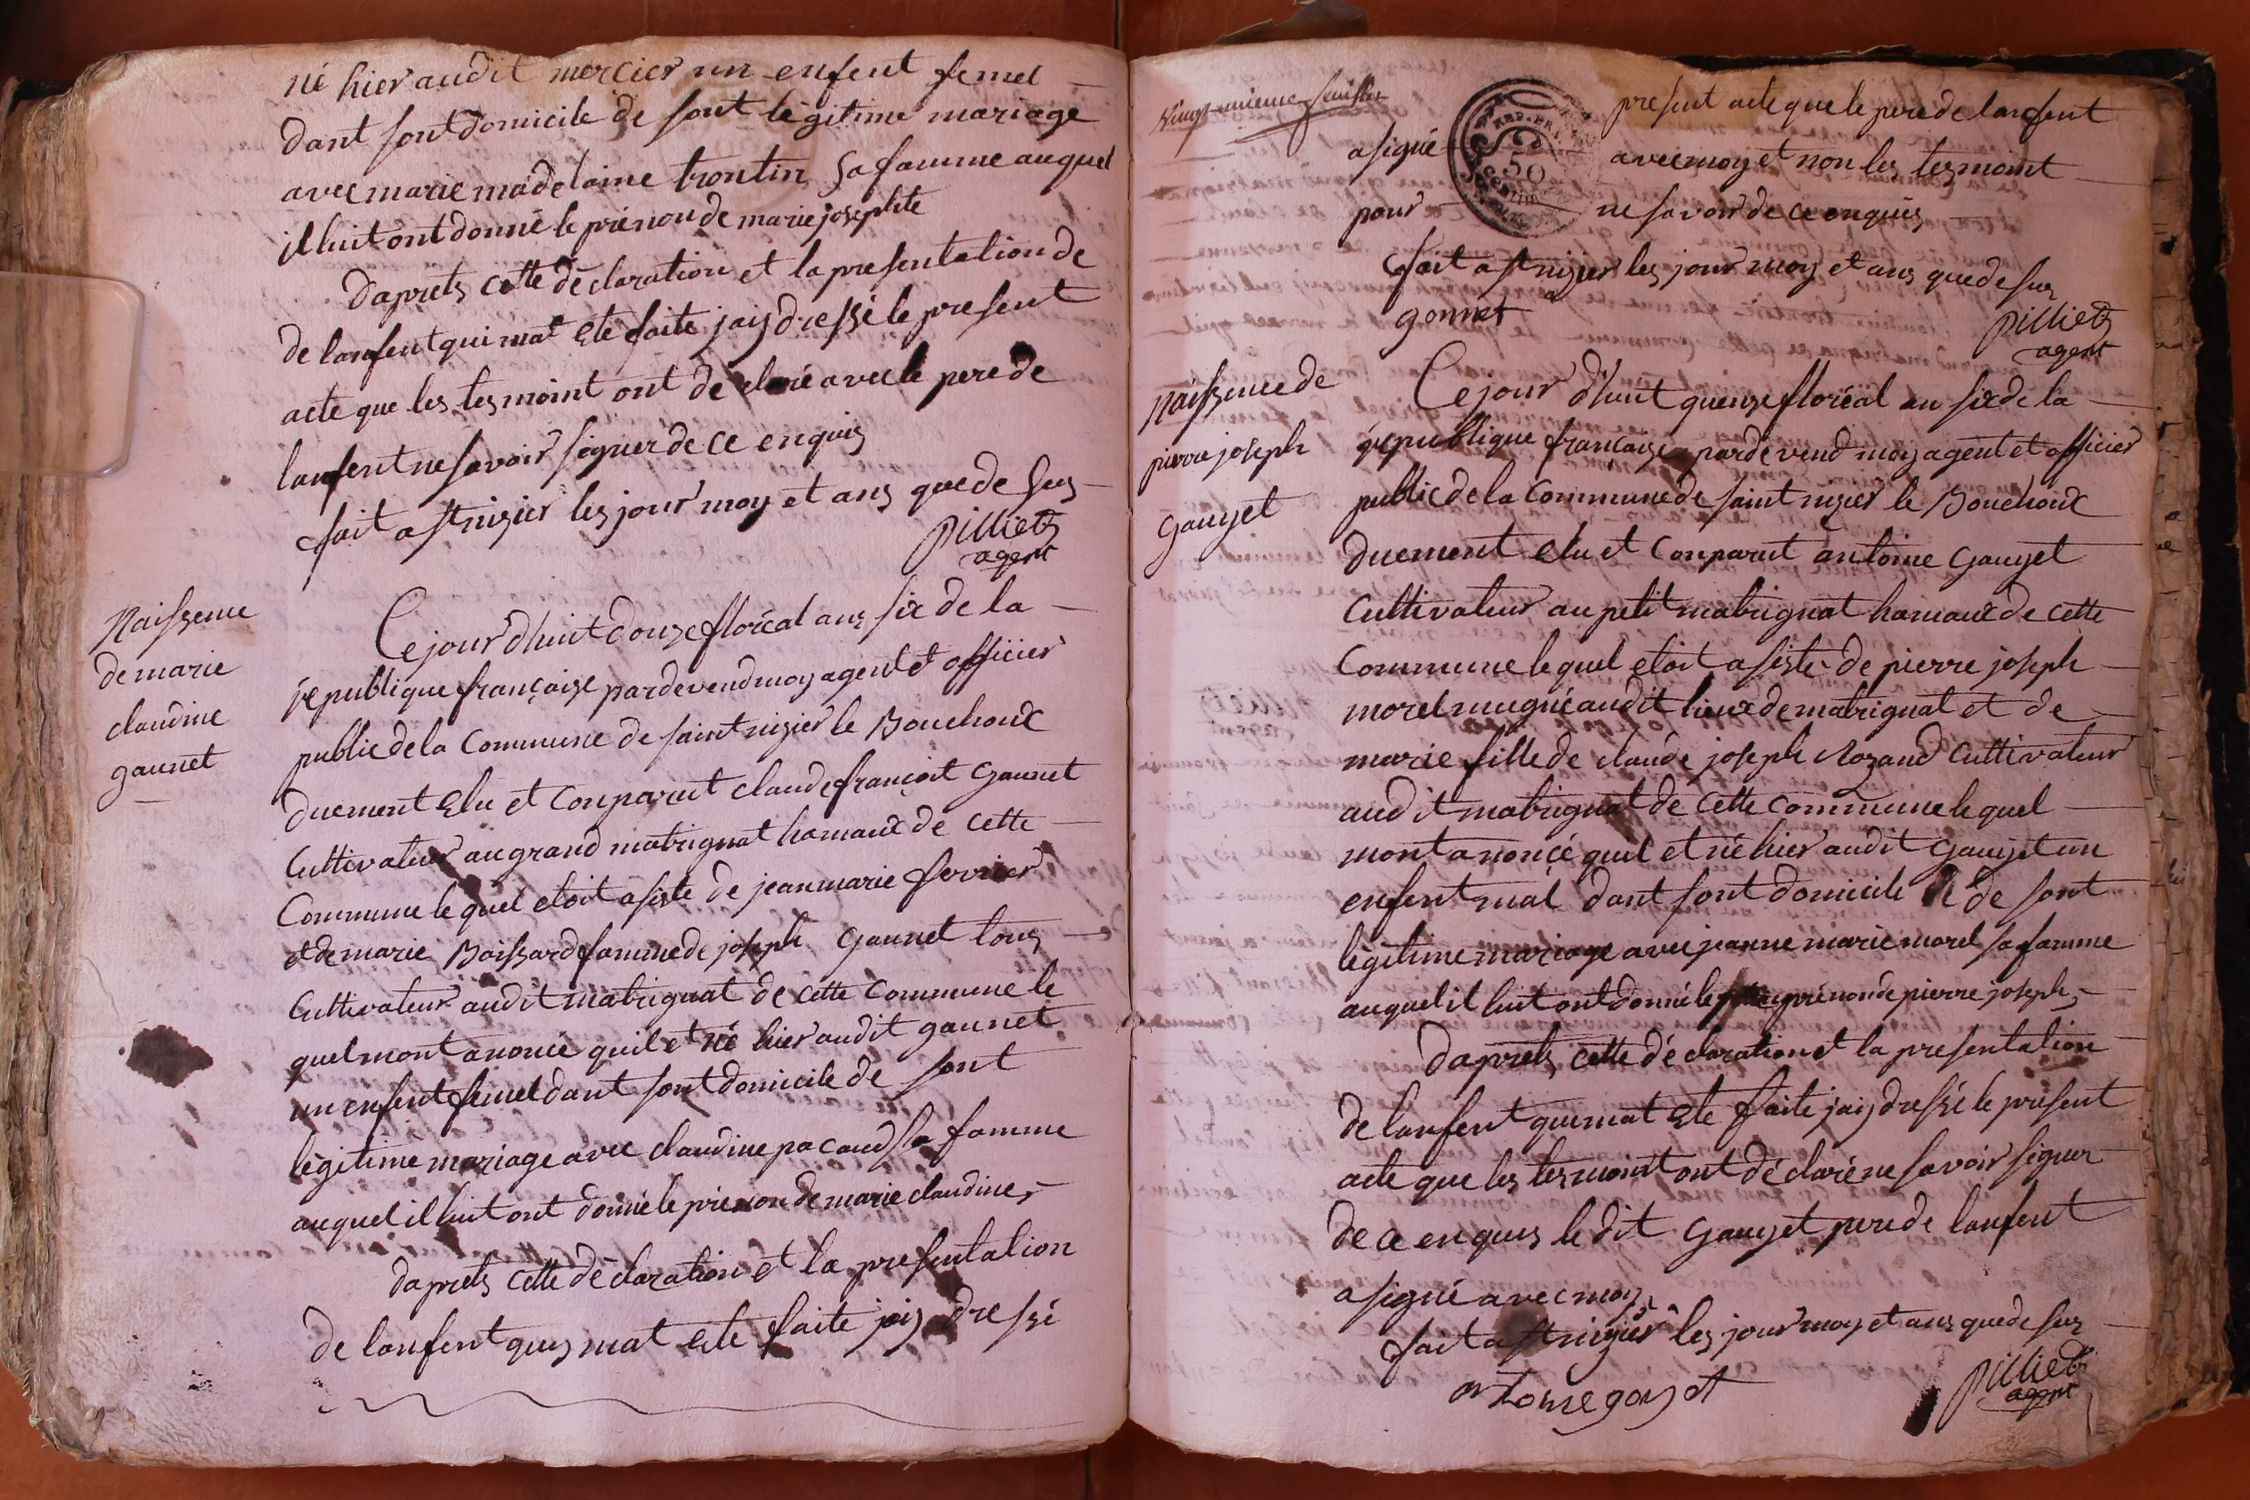 né hier audit mercier un enfent femel
dant sont domicile de sont légitime mariage
avec marie madelaine trontin sa famme auquel
il luit ont donné le prénon de marie josephte
daprets cette déclaration et la presentation de
de lanfent qui mat ete faite jaij dressé le present
acte que les tesmoint ont de claré avec le pere de
lanfent ne savoir signer de ce enquis
fait a st nizier les jour moy et ans que de sus
pilliet
agent
Naissence
de marie
claudine
gaunet
Ce jourdhuit douze floréal ans six de la
republique françaize pardevend moy agent et officier
public de la Commune de saint nizier le Bouchoux
duement elu et Conparut claude françoit gaunet
Cultivateur au grand matrignat hamaux de cette
Commune le quel etoit asiste de jean marie fevrier
et de marie Boissard famme de joseph gaunet tous
Cultivateur audit matrignat de cette Commune le
quel mont anoncé quil et né hier audit gaunet
un enfent femel dant sont domicile de sont
légitime mariage avec claudine pacaud sa famme
auquel il luit ont donné le prénon de marie claudine
daprets cette déclaration et la presentation
de lanfent quij mat ete faite jaij dressé
Vingt unieme feuillet
REP. FRA
50
present acte que le pere de lanfent
a signé avec moy et non les tesmoint
pour ne savoir de ce enquis
fait a st nizier les jour moy et ans que de sus
gonnet
pilliet
agent
Naissence de
pierre joseph
gauyet
Ce jour d'huit quenze floréal an six de la
republique françaize pardevend moy agent et officier
public de la Commune de saint nizier le Bouchoux
duement elu et Conparut antoine gauyet
Cultivateur au petit matrignat hamaux de cette
Commune le quel etoit asiste de pierre joseph
morel mugnié audit lieux de matrignat et de
marie fille de claude joseph Rozand Cultivateur
audit matrignat de cette commune le quel
mont anoncé quil et né hier audit gauyet un
enfent mal dant sont domicile de sont
légitime mariage avec jeanne marie morel sa famme
auquel il luit ont donné le prénon de pierre joseph
daprets cette déclaration et la presentation
de lanfent qui mat ete faite jaij dressé le present
acte que les tesmoint ont déclaré ne savoir signer
de ce enquis le dit gauyet pere de lanfent
a signé avec moy
fait a st nizier les jour moy et ans que de sus
antoine gayet
pilliet
agent